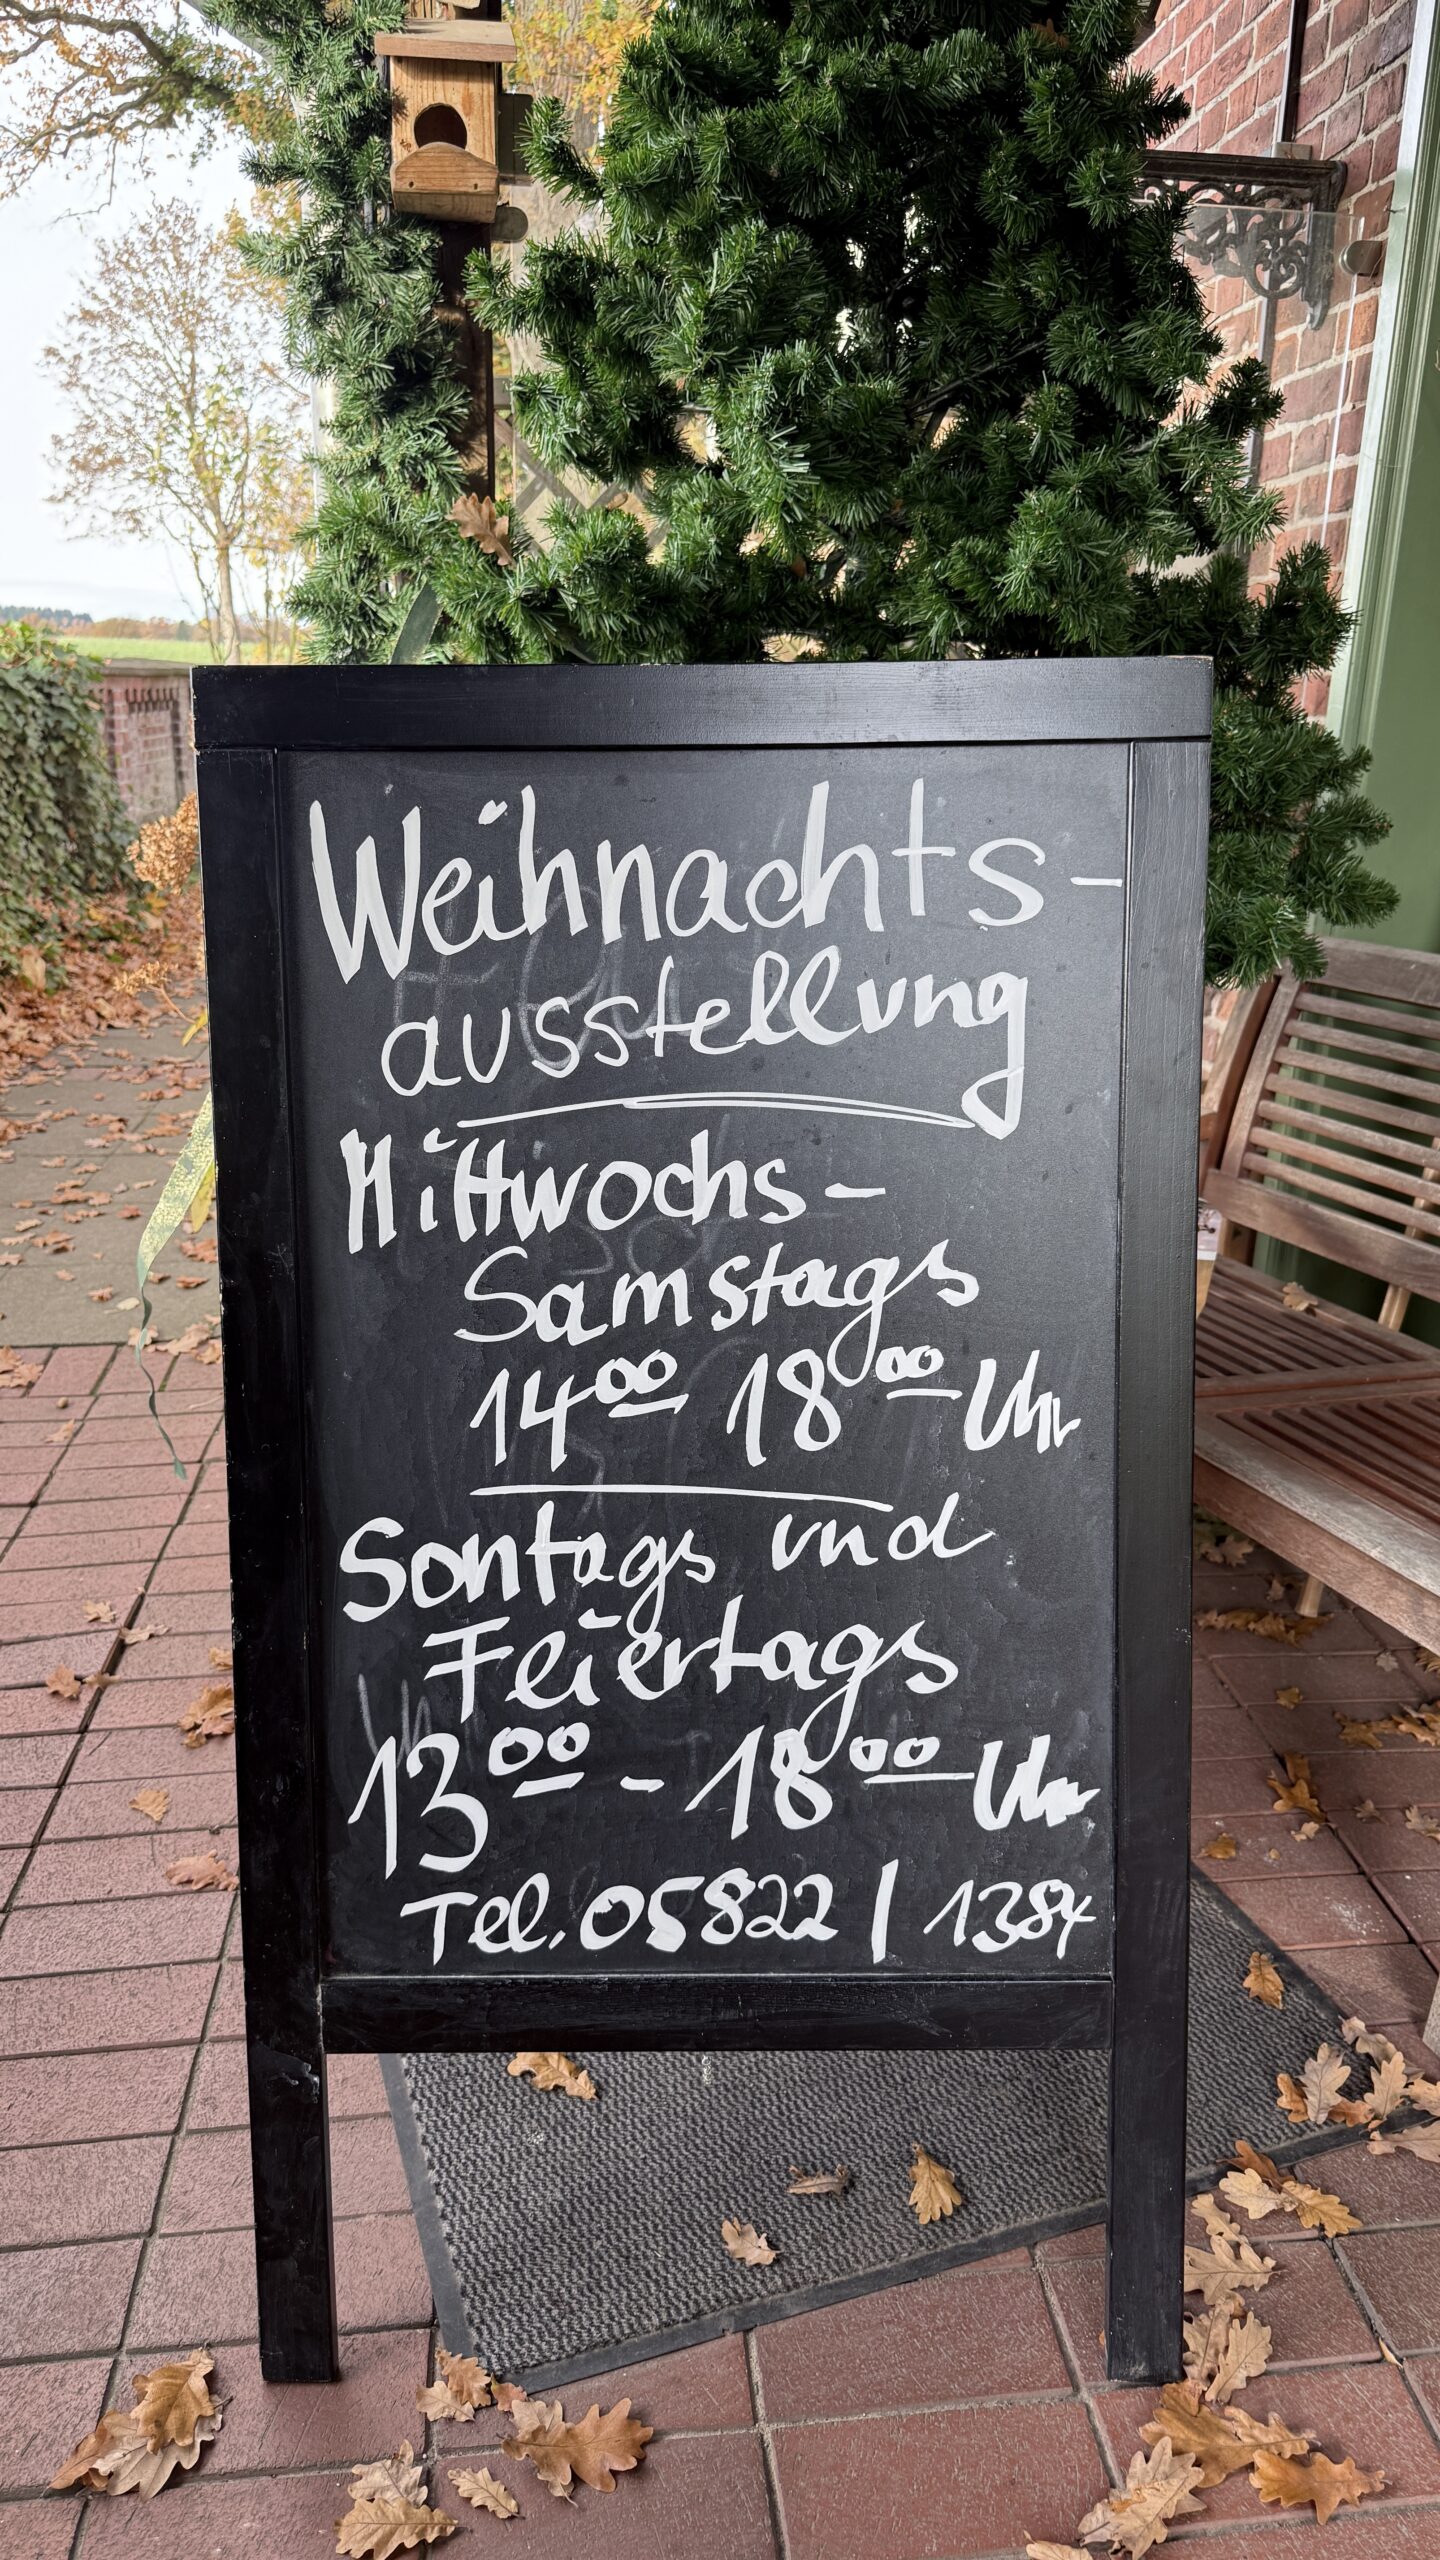 Weihnachts-
ausstellung
Mittwochs-
Samstags
14⁰⁰ 18⁰⁰ Uhr
Sontags und
Feiertags
13⁰⁰ - 18⁰⁰ Uhr
Tel. 05822 / 1384